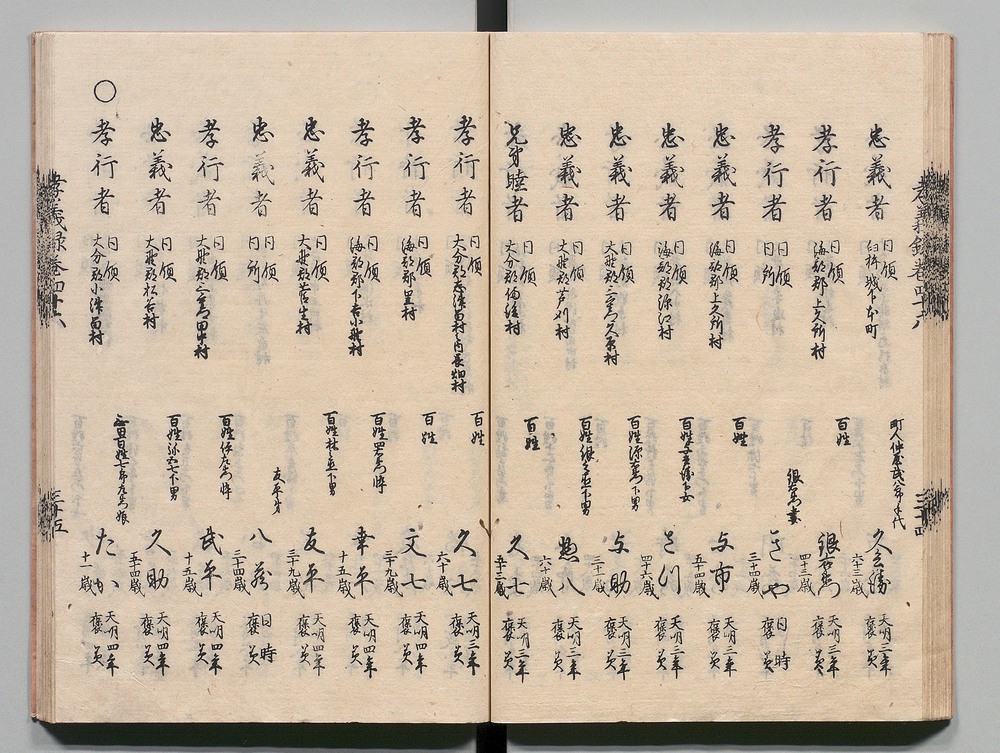 孝義録巻四十八
三十四
忠義者
同領
臼杵城下本町
町人仲屋武八郎手代
六十三歳
天明三年
褒美
孝行者
同領
海部郡上久所村
百姓
銀右衛門
四十三歳
天明三年
褒美
孝行者
同領
同所
銀右衛門妻
きや
三十四歳
同時
褒美
忠義者
同領
海部郡上久所村
百姓
与市
五十四歳
天明三年
褒美
忠義者
同領
海部郡深江村
百姓
下女
さ川
四十六歳
天明三年
褒美
忠義者
同領
大野郡三重郷久原村
百姓源右衛門下男
与助
三十歳
天明三年
褒美
忠義者
同領
大野郡芦刈村
百姓銀兵衛下男
惣八
六十歳
天明三年
褒美
兄弟睦者
同領
大分郡備後村
百姓
久七
五十三歳
天明三年
褒美
孝行者
同領
大分郡志津留村之内長畑村
百姓
久七
六十歳
天明三年
褒美
孝行者
同領
海部郡里村
百姓
文七
三十九歳
天明四年
褒美
孝行者
同領
海部郡下吉小野村
百姓
倅
幸平
十五歳
天明四年
褒美
忠義者
同領
大野郡菅生村
百姓林兵衛下男
友平
三十九歳
天明四年
褒美
忠義者
同領
同所
友平弟
八蔵
三十四歳
同時
褒美
孝行者
同領
大野郡三重郷田中村
百姓伝左衛門倅
武平
十五歳
天明四年
褒美
忠義者
同領
大野郡
百姓弥五七下男
久助
五十四歳
天明四年
褒美
○
孝行者
同領
大分郡小津留村
百姓七郎左衛門娘
たか
十一歳
天明四年
褒美
孝義録巻四十八
三十五